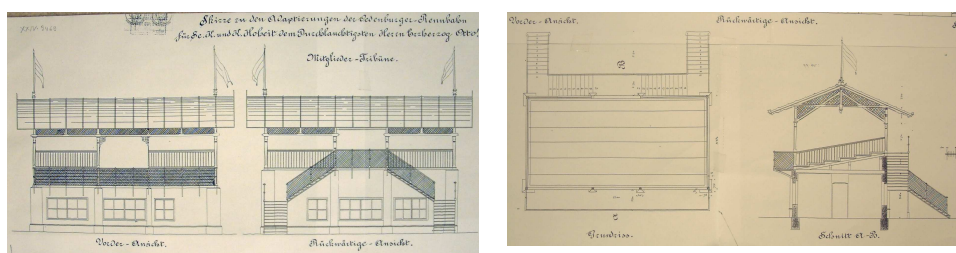 Skizze zu den Adaptierungen der Oedenburger-Rennbahn
für Se. K. und K. Hoheit dem Durchlauchtigsten Herrn Erzherzog Otto!
Mitglieder-Tribüne.
Vorder-Ansicht.
Rückwärtige-Ansicht.
Vorder-Ansicht.
Rückwärtige-Ansicht.
B
Grundriss.
Schnitt A-B.